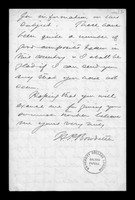 for information on this
subject. There have
been quite a number of
good composites taken in
this country & I shall be
glad if I can send you
any that you may not
have.
Hoping that you will
excuse me for giving you
so much trouble believe
me yours very truly
H. P. Bowditch